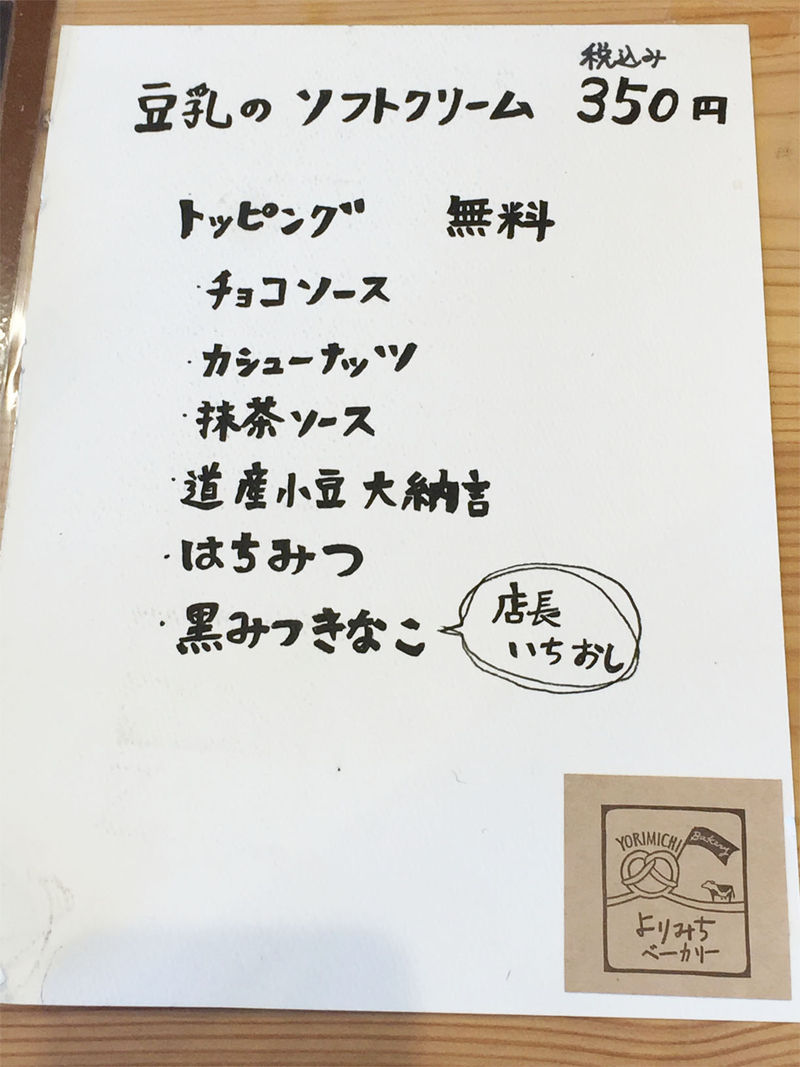 税込み
豆乳の ソフトクリーム 350円
トッピング 無料
・チョコソース
・カシューナッツ
・抹茶ソース
・道産小豆 大納言
・はちみつ
・黒みつきなこ
店長
いちおし
YORIMICHI
Bakery
よりみち
ベーカリー